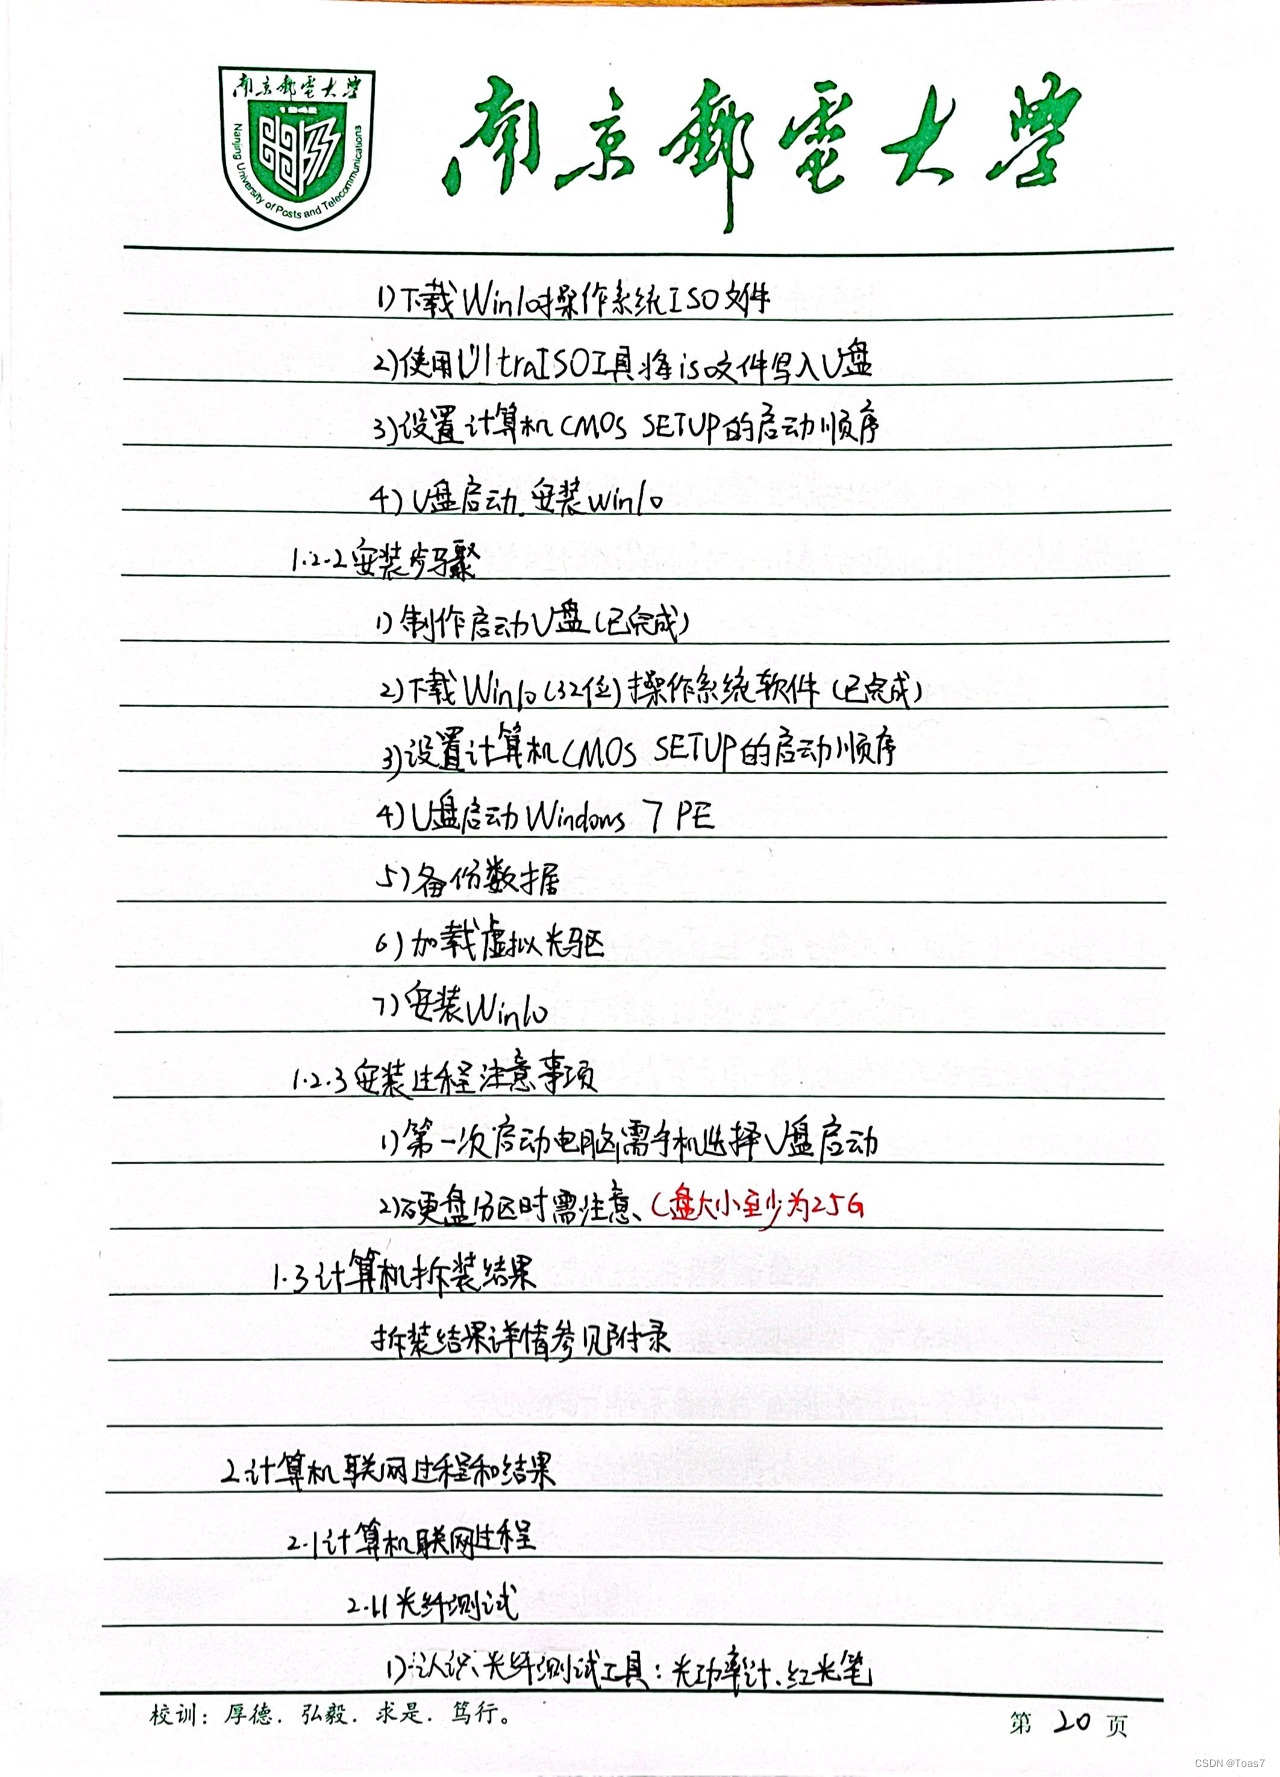 南京郵電大學
1942
Nanjing University of Posts and Telecommunications
南京郵電大學
1)下载Win10操作系统ISO文件
2)使用UltraISO工具将iso文件写入U盘
3)设置计算机CMOS SETUP的启动顺序
4)U盘启动.安装win10
1.2.2安装步骤
1)制作启动U盘(已完成)
2)下载Win10(32位)操作系统软件(已完成)
3)设置计算机CMOS SETUP的启动顺序
4)U盘启动Windows 7 PE
5)备份数据
6)加载虚拟光驱
7)安装Win10
1.2.3安装过程注意事项
1)第一次启动电脑需手机选择U盘启动
2)硬盘分区时需注意、C盘大小至少为25G
1.3计算机拆装结果
拆装结果详情参见附录
2.计算机联网过程和结果
2.1计算机联网过程
2.1.1光纤测试
1)认识光纤测试工具:光功率计、红光笔
校训:厚德.弘毅.求是.笃行。
第20页
CSDN @Toas7